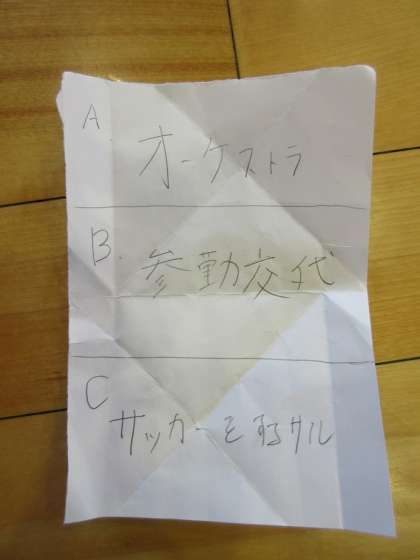 A
オーケストラ
B.
参勤交代
C
サッカーをするサル